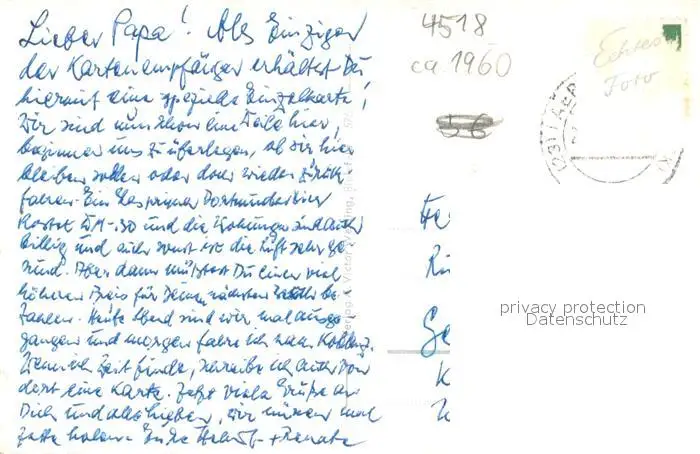 Lieber Papa! Als Einziger
der Kartenempfänger erhältst Du
hiermit eine spezielle Einzelkarte!
Wir sind nun schon eine hier,
beginnen uns zu überlegen, ob wir hier
bleiben sollen oder doch wieder zurück
fahren. Ein Dortmunder Bier
kostet DM -.30 und die Wohnungen sind auch
billig und auch sonst ist die Luft sehr ge
sund. Aber dann müßtest Du einen viel
höheren Preis für Deinen nächsten be-
zahlen. Heute Abend sind wir mal ausge
gangen und morgen fahre ich nach Koblenz.
Wenn ich Zeit finde, schreibe ich auch von
dort eine Karte. Jetzt viele Grüße an
Dich und alle lieben, wir müssen mal
holen. Eure + Renate
4518
ca 1960
56
Echtes
Foto
privacy protection
Datenschutz